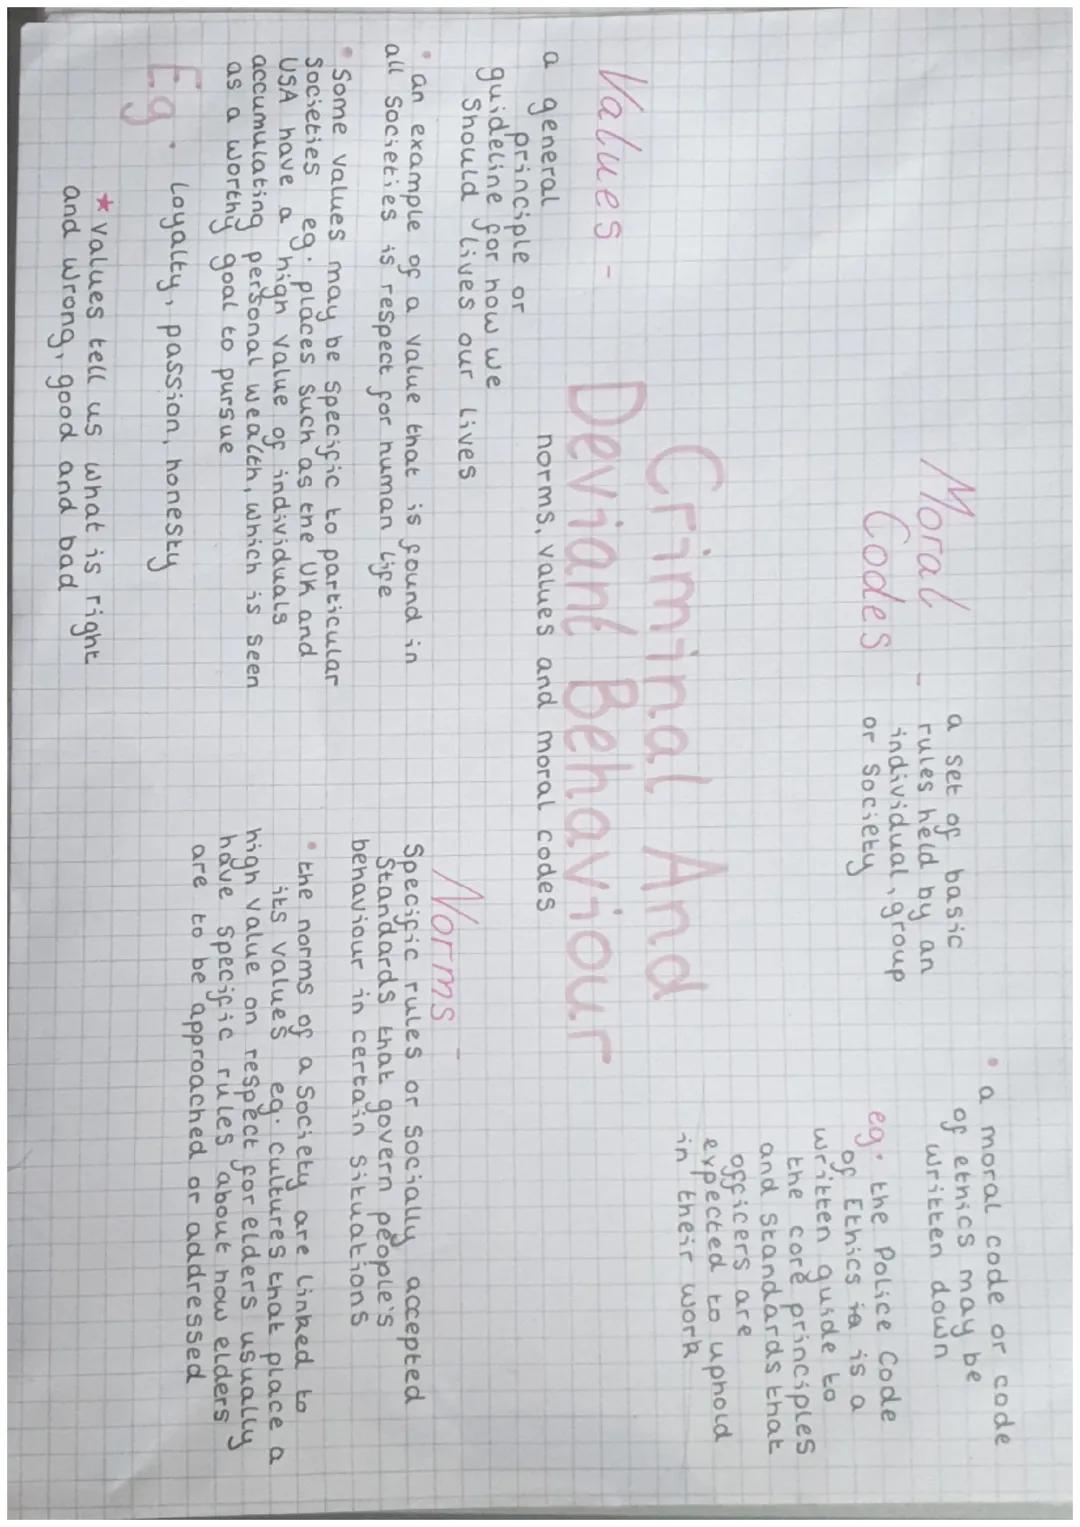 Moral -
Codes
a set of basic
rules held by an
individual, group
or society
• a moral code or code
of ethics may be
written down
eg. the Police Code
of Ethics is a
written guide to
the core principles
and standards that
officers are
expected to uphold
in their work
Criminal And
Deviant Behaviour
norms, values and moral codes
Values -
a general
principle or
guideline for how we
should lives our lives
• an example of a value that is found in
all societies is respect for human life
• Some values may be specific to particular
societies eg. places such as the UK and
USA have a high value of individuals
accumulating personal wealth, which is seen
as a worthy goal to pursue
Eg. Loyalty, passion, honesty
* values tell us what is right
and wrong, good and bad
Norms -
Specific rules or socially accepted
standards that govern people's
behaviour in certain situations
• the norms of a society are linked to
its values eg. cultures that place a
high value on respect for elders usually
have specific rules about how elders
are to be approached or addressed